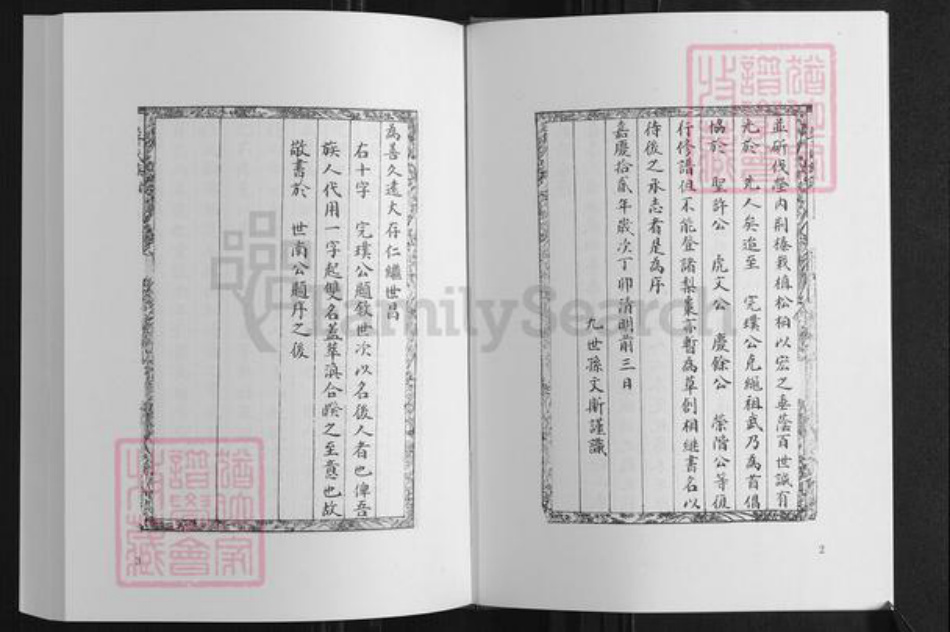 並斫伐塋內荊榛栽植松柏以宏之垂蔭百世誠有
光於 先人矣迨至 完璞公克繩祖武乃為首倡
協於 聖許公 虎文公 慶餘公 榮階公等復
行修譜但不能登諸梨棗亦暫為草創相繼書名以
待後之承志者是為序
嘉慶拾貳年歲次丁卯清明前三日
九世孫文斯謹識
2
為善久遠大存仁繼世昌
右十字 完璞公題敘世次以名後人者也俾吾
族人代用一字起雙名蓋萃渙合睽之至意也故
敬書於 世南公題序之後
3
FamilySearch